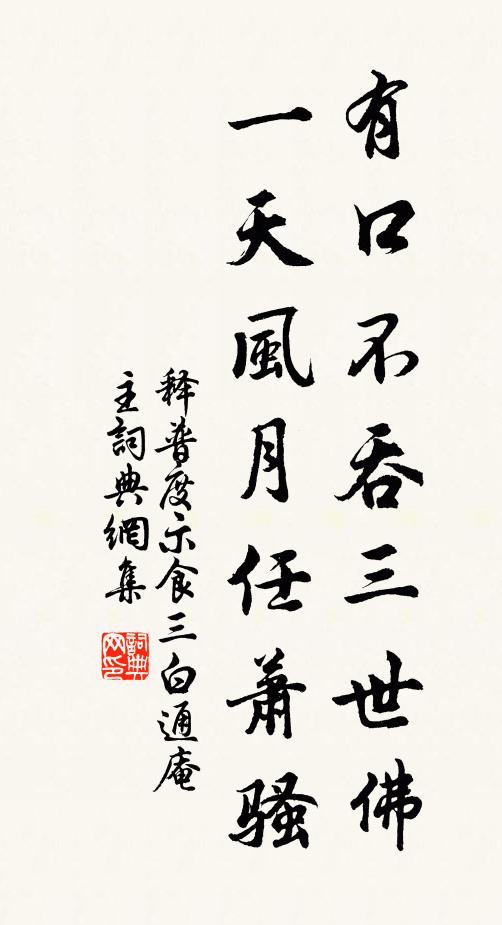 有口不吞三世佛
一天風月任蕭骚
释普度示食三白通庵
主詞典網集
詞典网印